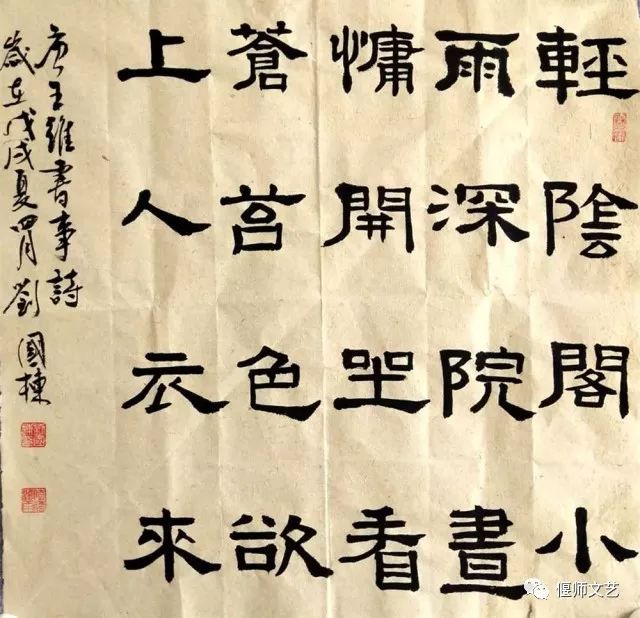 輕陰閣小
雨深院晝
慵開坐看
蒼苔色欲
上人衣來
唐王維書事詩
歲在戊戌夏四月劉國棟
偃师文艺